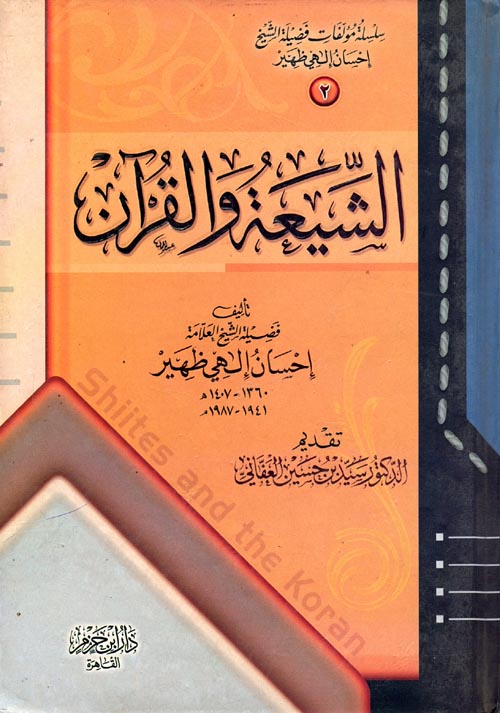 سلسلة مؤلفات فضيلة الشيخ
إحسان إلهي ظهير
٢
الشِّيعَةُ وَالقُرآن
تأليف
فضيلة الشيخ العلامة
إحسان إلهي ظهير
١٣٦٠ - ١٤٠٧ هـ
١٩٤١ - ١٩٨٧ م
تقديم
الدكتور سيد بن حسين العفاني
Shiites and the Koran
دار ابن حزم
القاهرة